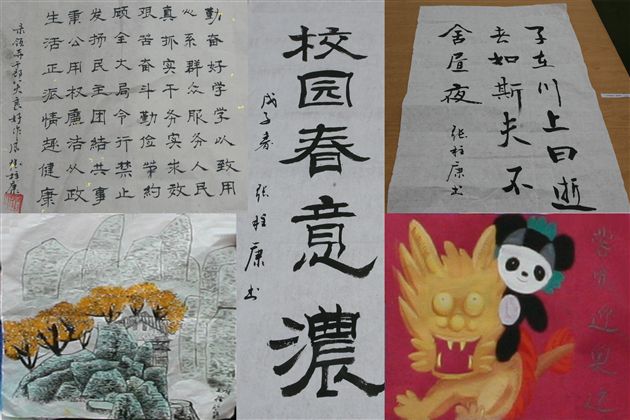 勤奋好学学以致用
心系群众服务人民
真抓实干务实求效
艰苦奋斗勤俭節约
顾全大局令行禁止
发扬民主团结共事
秉公用权廉洁从政
生活正派情趣健康
录领导干部八良好作风 张柱康
校园春意濃
戊子春 张柱康书
子在川上曰逝
者如斯夫不
舍昼夜
张柱康书
迎奥运